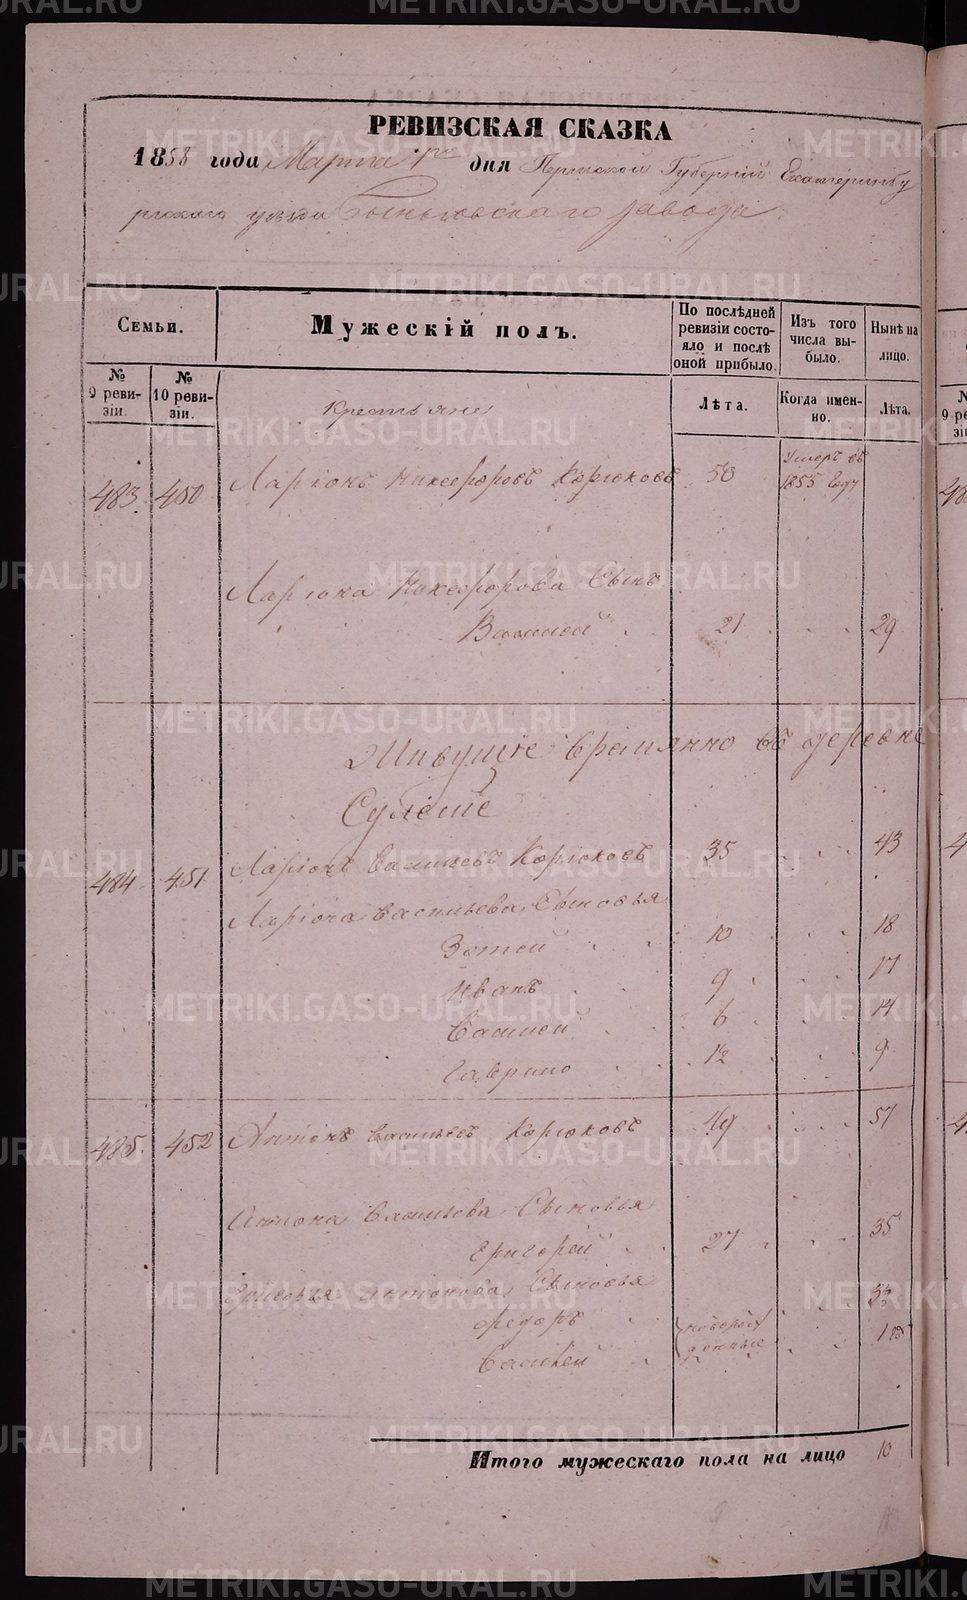 РЕВИЗСКАЯ СКАЗКА
1858 года Марта 1го дня Пермской Губерніи Екатеринбу
ргскаго уѣзда Быньговскаго завода
Семьи.
Мужескій полъ.
По послѣдней ревизіи состояло и послѣ оной прибыло.
Изъ того числа выбыло.
Нынѣ на лицо.
№ 9 ревизіи.
№ 10 ревизіи.
Лѣта.
Когда именно.
Лѣта.
Крестьяне
483 450 Ларіонъ Никефоровъ Корюковъ 50 Умеръ въ 1855 году
Ларіона Никефорова Сынъ
Василей 21 29
Живущіе временно въ деревне
Сулеме
484 451 Ларіонъ Васильевъ Корюковъ 35 43
Ларіона Васильева Сыновья
Зотей 10 18
Иванъ 9 17
Василей 6 14
Гаврило 1/2 9
485 452 Антонъ Васильевъ Корюковъ 49 57
Антона Васильева Сыновья
Григорей 27 35
Григорья Антонова Сыновья
Федоръ новорож
Василей денные 1
Итого мужескаго пола на лицо 10
METRIKI.GASO-URAL.RU